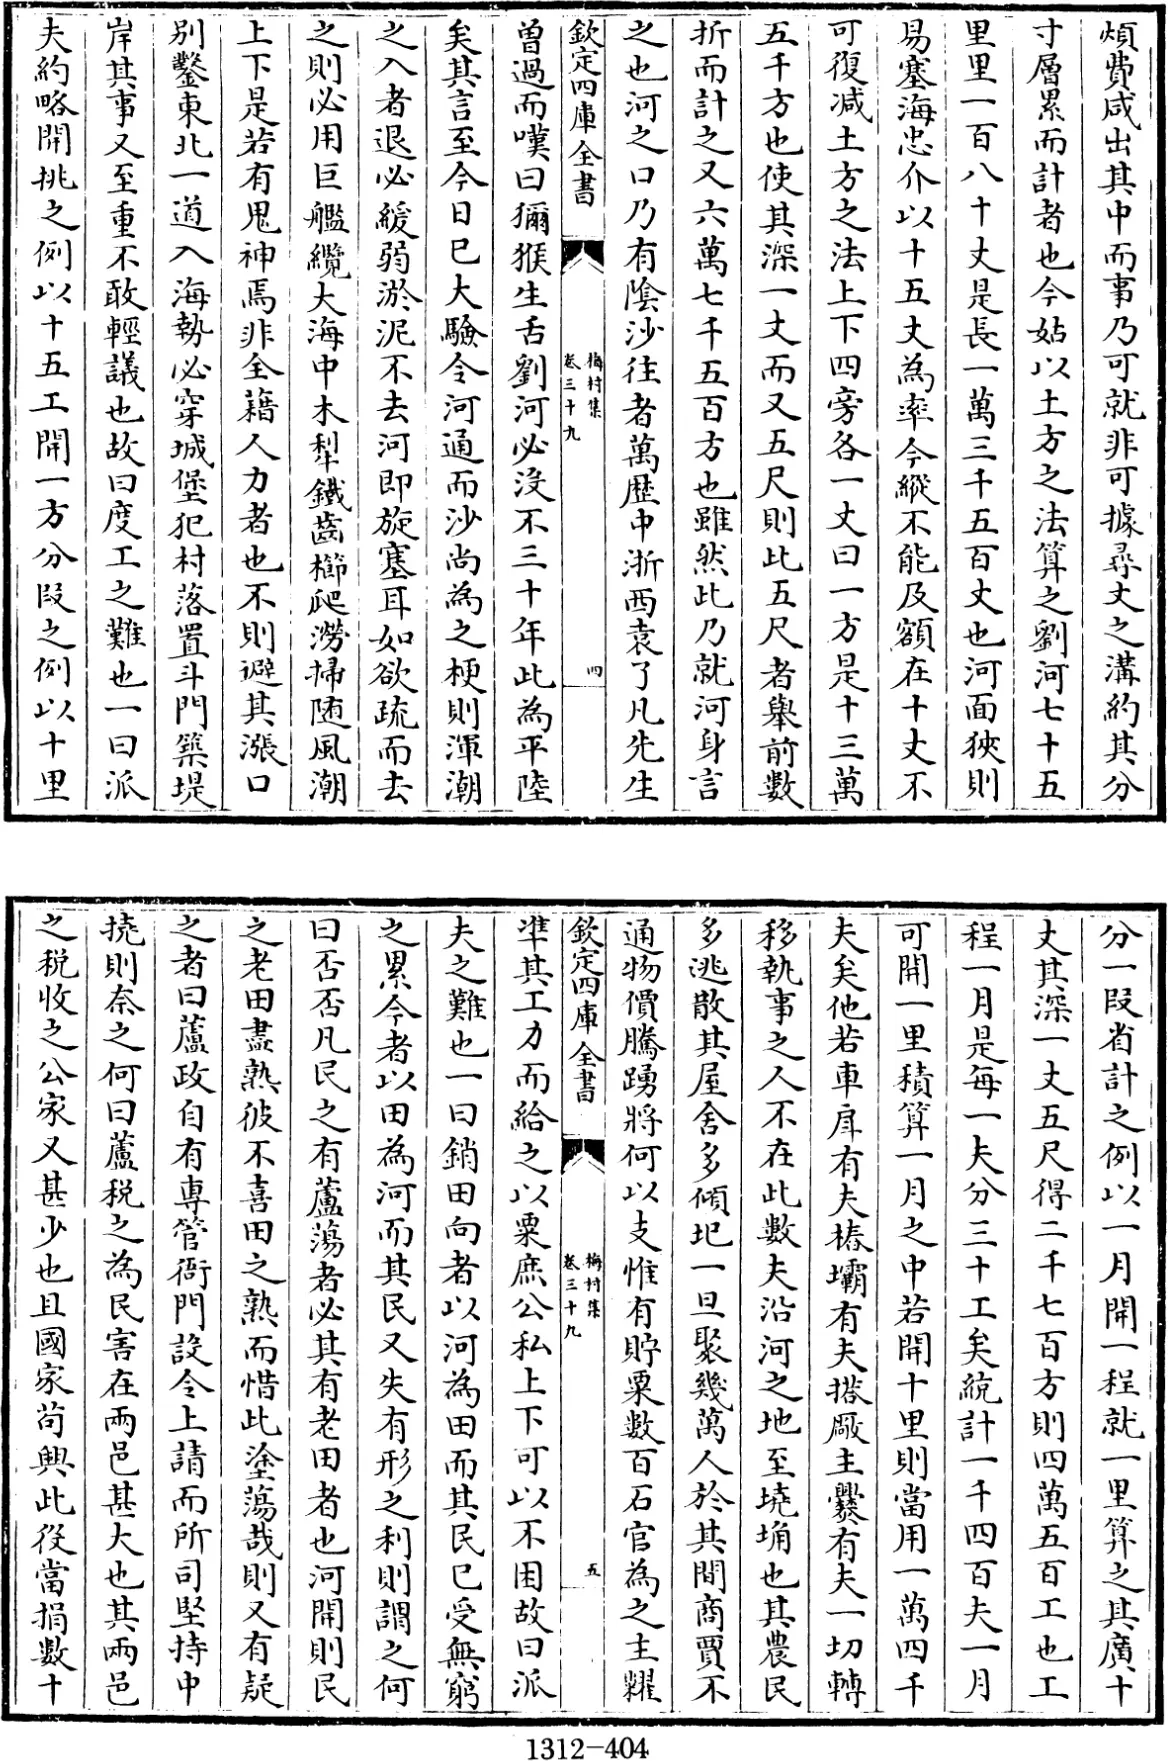 煩費咸出其中而事乃可就非可據尋丈之溝約其分
寸層累而計者也今姑以土方之法算之劉河七十五
里里一百八十丈是長一萬三千五百丈也河面狹則
易塞海忠介以十五丈為率今縱不能及額在十丈不
可復減土方之法上下四旁各一丈曰一方是十三萬
五千方也使其深一丈而又五尺則此五尺者舉前數
折而計之又六萬七千五百方也雖然此乃就河身言
之也河之口乃有陰沙往者萬歷中浙西袁了凡先生
欽定四庫全書
梅村集
卷三十九
四
曾過而嘆曰獼猴生舌劉河必沒不三十年此為平陸
矣其言至今日已大驗令河通而沙尚為之梗則渾潮
之入者退必緩弱淤泥不去河即旋塞耳如欲疏而去
之則必用巨艦纜大海中木犁鐵齒櫛爬澇掃随風潮
上下是若有鬼神焉非全藉人力者也不則避其漲口
别鑿東北一道入海勢必穿城堡犯村落置斗門築堤
岸其事又至重不敢輕議也故曰度工之難也一曰派
夫約略開挑之例以十五工開一方分段之例以十里
分一段省計之例以一月開一程就一里算之其廣十
丈其深一丈五尺得二千七百方則四萬五百工也工
程一月是每一夫分三十工矣統計一千四百夫一月
可開一里積算一月之中若開十里則當用一萬四千
夫矣他若車戽有夫樁壩有夫搭廠主爨有夫一切轉
移執事之人不在此數夫沿河之地至墝埆也其農民
多逃散其屋舍多傾圯一旦聚幾萬人於其間商賈不
通物價騰踴將何以支惟有貯粟數百石官為之主糶
欽定四庫全書
梅村集
卷三十九
五
凖其工力而給之以粟庶公私上下可以不困故曰派
夫之難也一曰銷田向者以河為田而其民已受無窮
之累今者以田為河而其民又失有形之利則謂之何
曰否否凡民之有蘆蕩者必其有老田者也河開則民
之老田盡熟彼不喜田之熟而惜此塗蕩哉則又有疑
之者曰蘆政自有專管衙門設令上請而所司堅持中
撓則奈之何曰蘆税之為民害在兩邑甚大也其兩邑
之税收之公家又甚少也且國家苟興此役當捐數十
1312-404